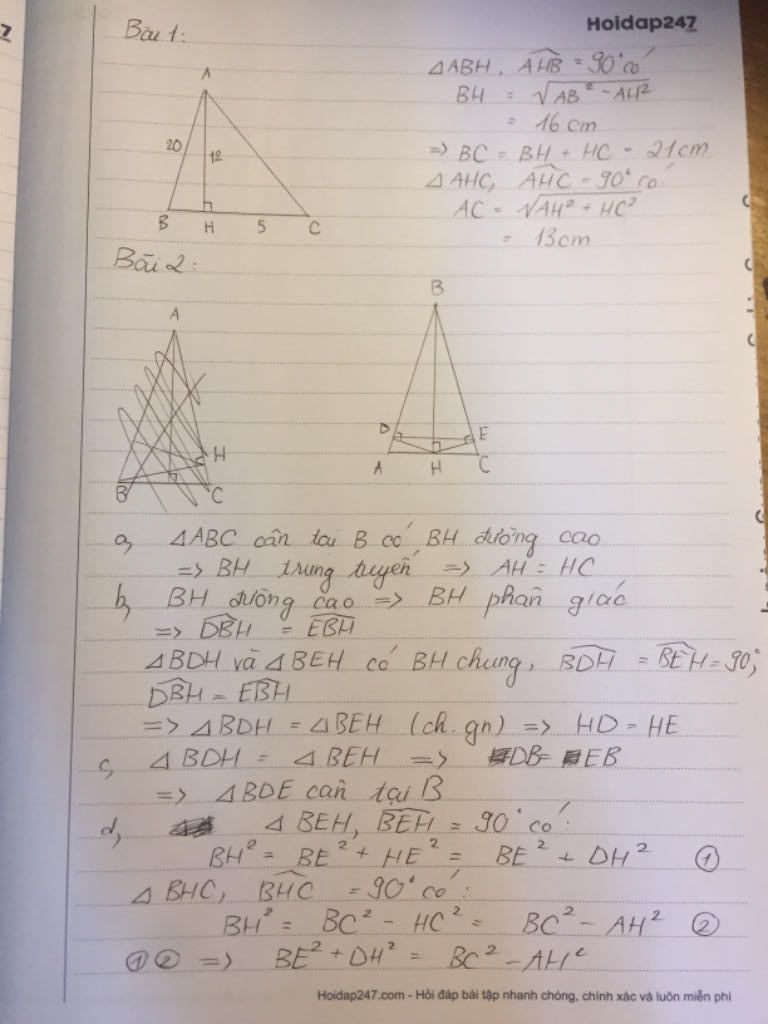 Hoidap247
Bài 1:
A
20
12
B
H
5
C
△ABH, AHB = 90° có
BH = √AB² - AH²
= 16 cm
=> BC = BH + HC = 21 cm
△AHC, AHC = 90° có
AC = √AH² + HC²
= 13 cm
Bài 2:
A
H
B
C
B
D
E
A
H
C
a, △ABC cân tại B có BH đường cao
=> BH trung tuyến => AH = HC
b, BH đường cao => BH phân giác
=> DBH = EBH
△BDH và △BEH có BH chung, BDH = BEH = 90°,
DBH = EBH
=> △BDH = △BEH (ch.gn) => HD = HE
c, △BDH = △BEH => DB = EB
=> △BDE cân tại B
d, △BEH, BEH = 90° có:
BH² = BE² + HE² = BE² + DH² ①
△BHC, BHC = 90° có:
BH² = BC² - HC² = BC² - AH² ②
① ② => BE² + DH² = BC² - AH²
Hoidap247.com - Hỏi đáp bài tập nhanh chóng, chính xác và luôn miễn phí